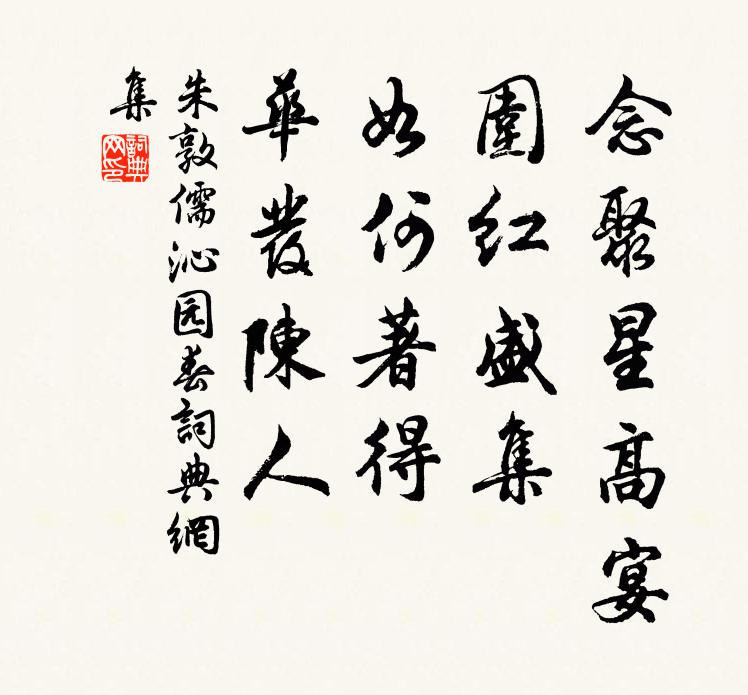 念聚星高宴
圍红盛集
如何著得
華發陳人
朱敦儒沁园春詞典網
集
詞典
网印